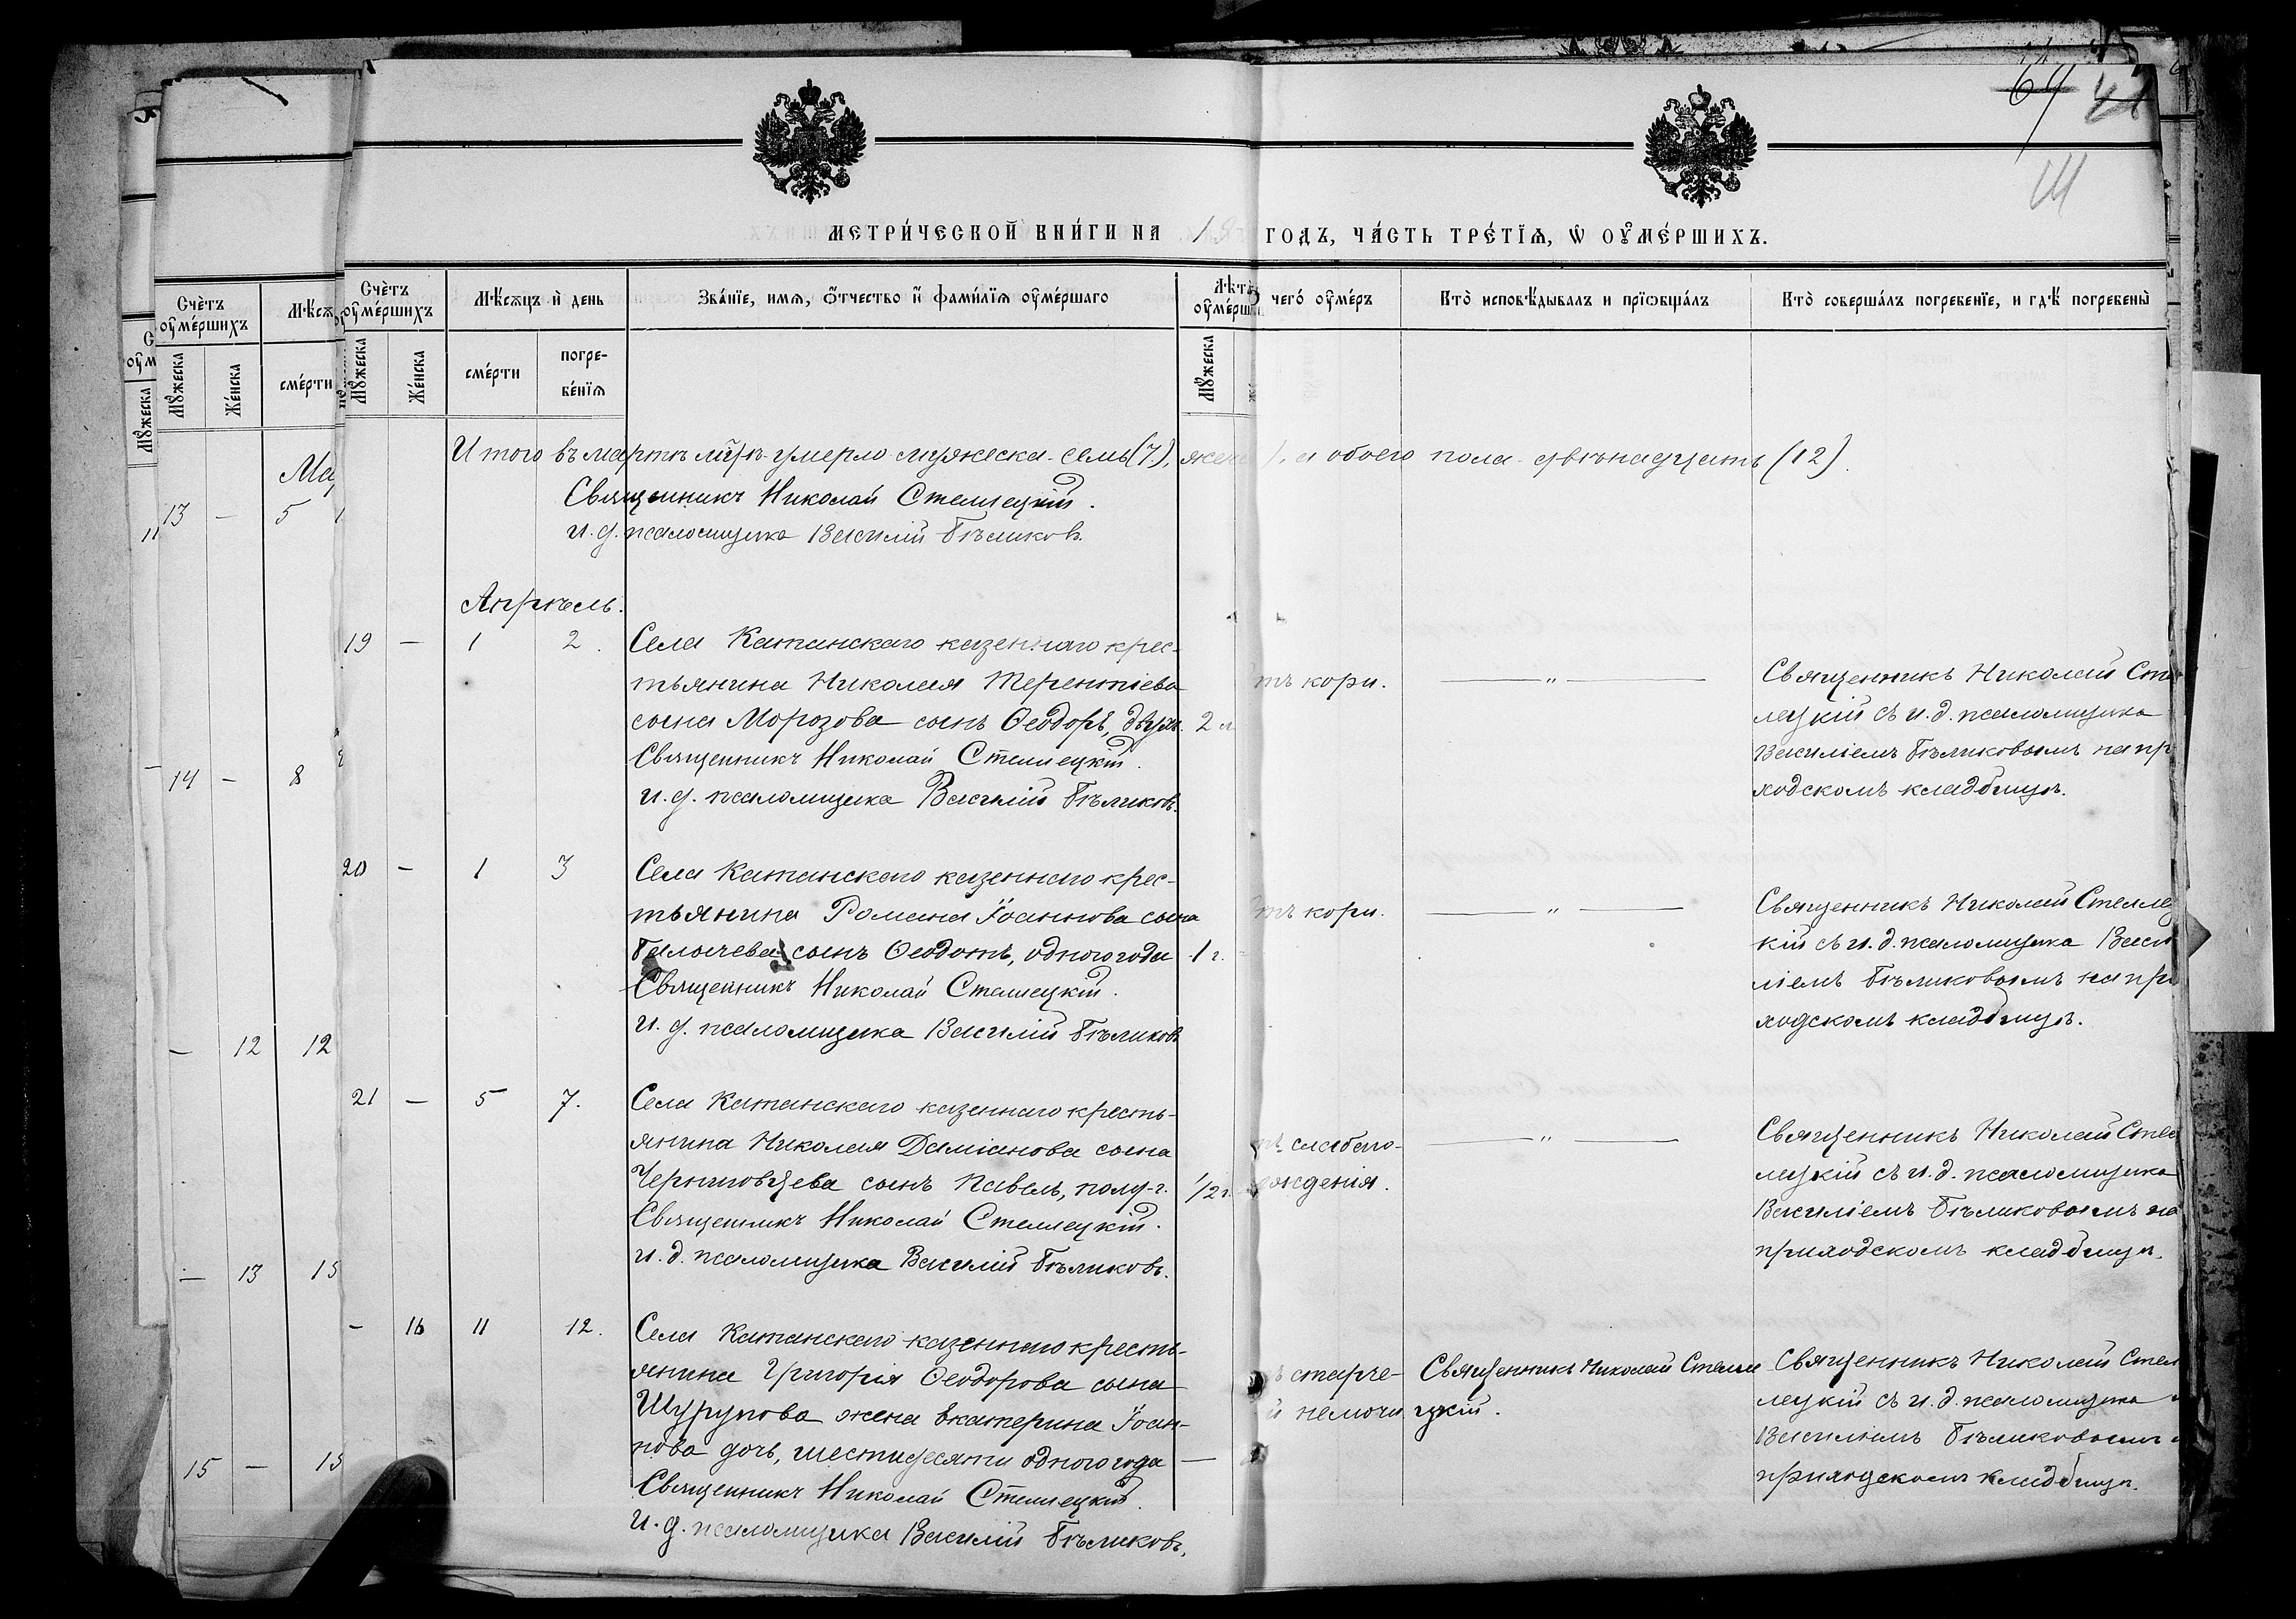 64 47
Ш
МЕТРИ́ЧЕСКОЙ КНИ́ГИ НА 18 ГОДЪ, ЧА́СТЬ ТРЕ́ТЇѦ, Ѡ ОУ҆МЕ́РШИХЪ.
Сче́тъ оу҆ме́ршихъ
Мѣ́сѧцъ и҆ день
Зва́нїе, имѧ, ѻ҆́тчество и҆ фами́лїѧ оу҆ме́ршаго
Лѣта̀ оу҆ме́рш
чегѡ̀ оу҆ме́ръ
Кто̀ исповѣ́дывалъ и прїѡбща́лъ
Кто̀ соверша́лъ погребенїе, и гдѣ̀ погребены̀
Мꙋ́жеска
Же́нска
сме́рти
погре-
бе́нїѧ
Мꙋ́жеска
Итого въ мартѣ м-цѣ умерло мужеска семь (7), жен ), а обоего пола двѣнадцать (12).
Священникъ Николай Стеллецкій.
И. д. псаломщика Василій Бѣликовъ.
Апрѣль.
19 — 1 2. Села Катанскаго казеннаго крес-
тьянина Николая Терентіева
сына Морозова сынъ Ѳеодоръ, двухъ. 2 л
Священникъ Николай Стеллецкій.
И. д. псаломщика Василій Бѣликовъ.
тъ кори.
— „ —
Священникъ Николай Сте
лецкій съ и. д. псаломщика
Василіемъ Бѣликовымъ на при
ходскомъ кладбищѣ.
20 — 1 3 Села Катанскаго казеннаго крес-
тьянина Романа Іоаннова сына
сынъ Ѳеодотъ, одного года 1 г.
Священникъ Николай Стеллецкій.
И. д. псаломщика Василій Бѣликовъ
тъ кори.
— „ —
Священникъ Николай Стеллец
кій съ и. д. псаломщика Васи
ліемъ Бѣликовымъ на при
ходскомъ кладбищѣ.
21 — 5 7. Села Катанскаго казеннаго кресть-
янина Николая Даміанова сына
Черниговцева сынъ Павелъ, полу-г. 1/2 г.
Священникъ Николай Стеллецкій.
И. д. псаломщика Василій Бѣликовъ.
слабаго-
рожденія.
— „ —
Священникъ Николай Стел
лецкій съ и. д. псаломщика
Василіемъ Бѣликовымъ на
приходскомъ кладбищѣ.
— 16 11 12. Села Катанскаго казеннаго кресть-
янина Григорія Ѳеодорова сына
Шурупова жена Екатерина Іоан-
нова дочь, шестидесяти одного года —
Священникъ Николай Стеллецкій.
И. д. псаломщика Василій Бѣликовъ.
ъ старче-
й немочи
Священникъ Николай Стелле
цкій.
Священникъ Николай Стел
лецкій съ и. д. псаломщика
Василіемъ Бѣликовымъ
приходскомъ кладбищѣ.
Сче́тъ оу҆ме́ршихъ
Мѣ́сѧ
Мꙋ́жеска
Же́нска
сме́рти
Ма
13 — 5
14 — 8
— 12 12
— 13 15
15 — 15
Мꙋ́жеска